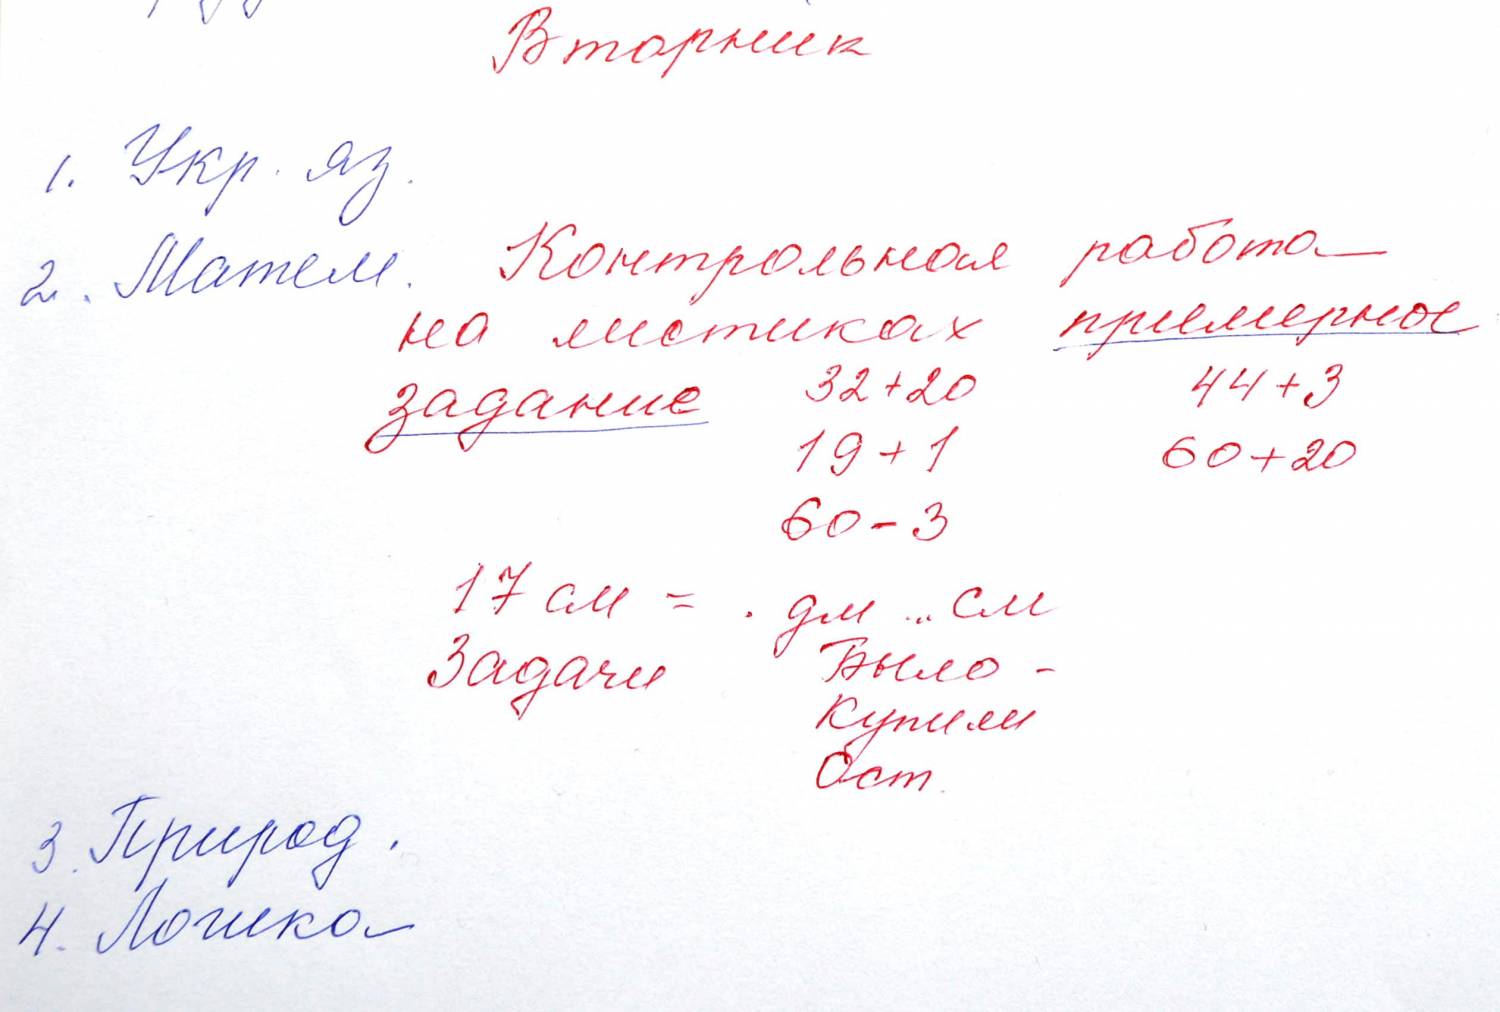 Вторник
1. Укр. яз.
2. Матем. Контрольная работа
на листиках примерное
задание 32+20 44+3
19+1 60+20
60-3
17 см = . дм ... см
Задачи Было -
Купили
Ост.
3. Природ.
4. Логика